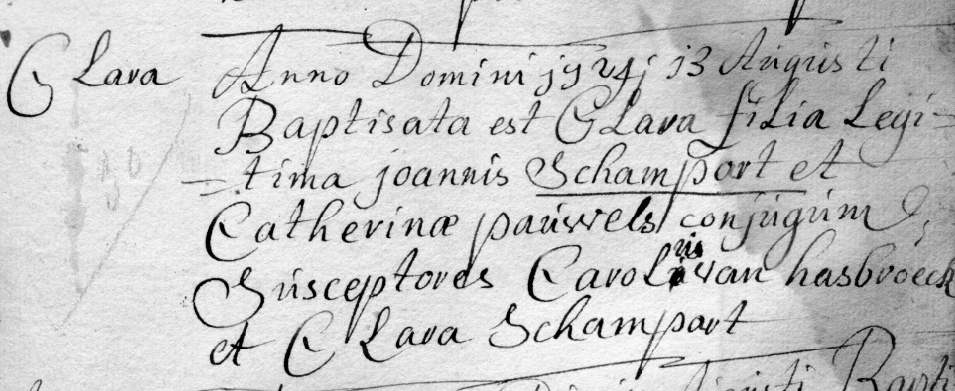 CLara Anno Domini j724 j3 Augusti
Baptisata est CLara filia Legi=
=tima joannis Schamport et
Catherinæ pauwels conjugum
Susceptores Carolus van hasbroeck
et CLara Schampart